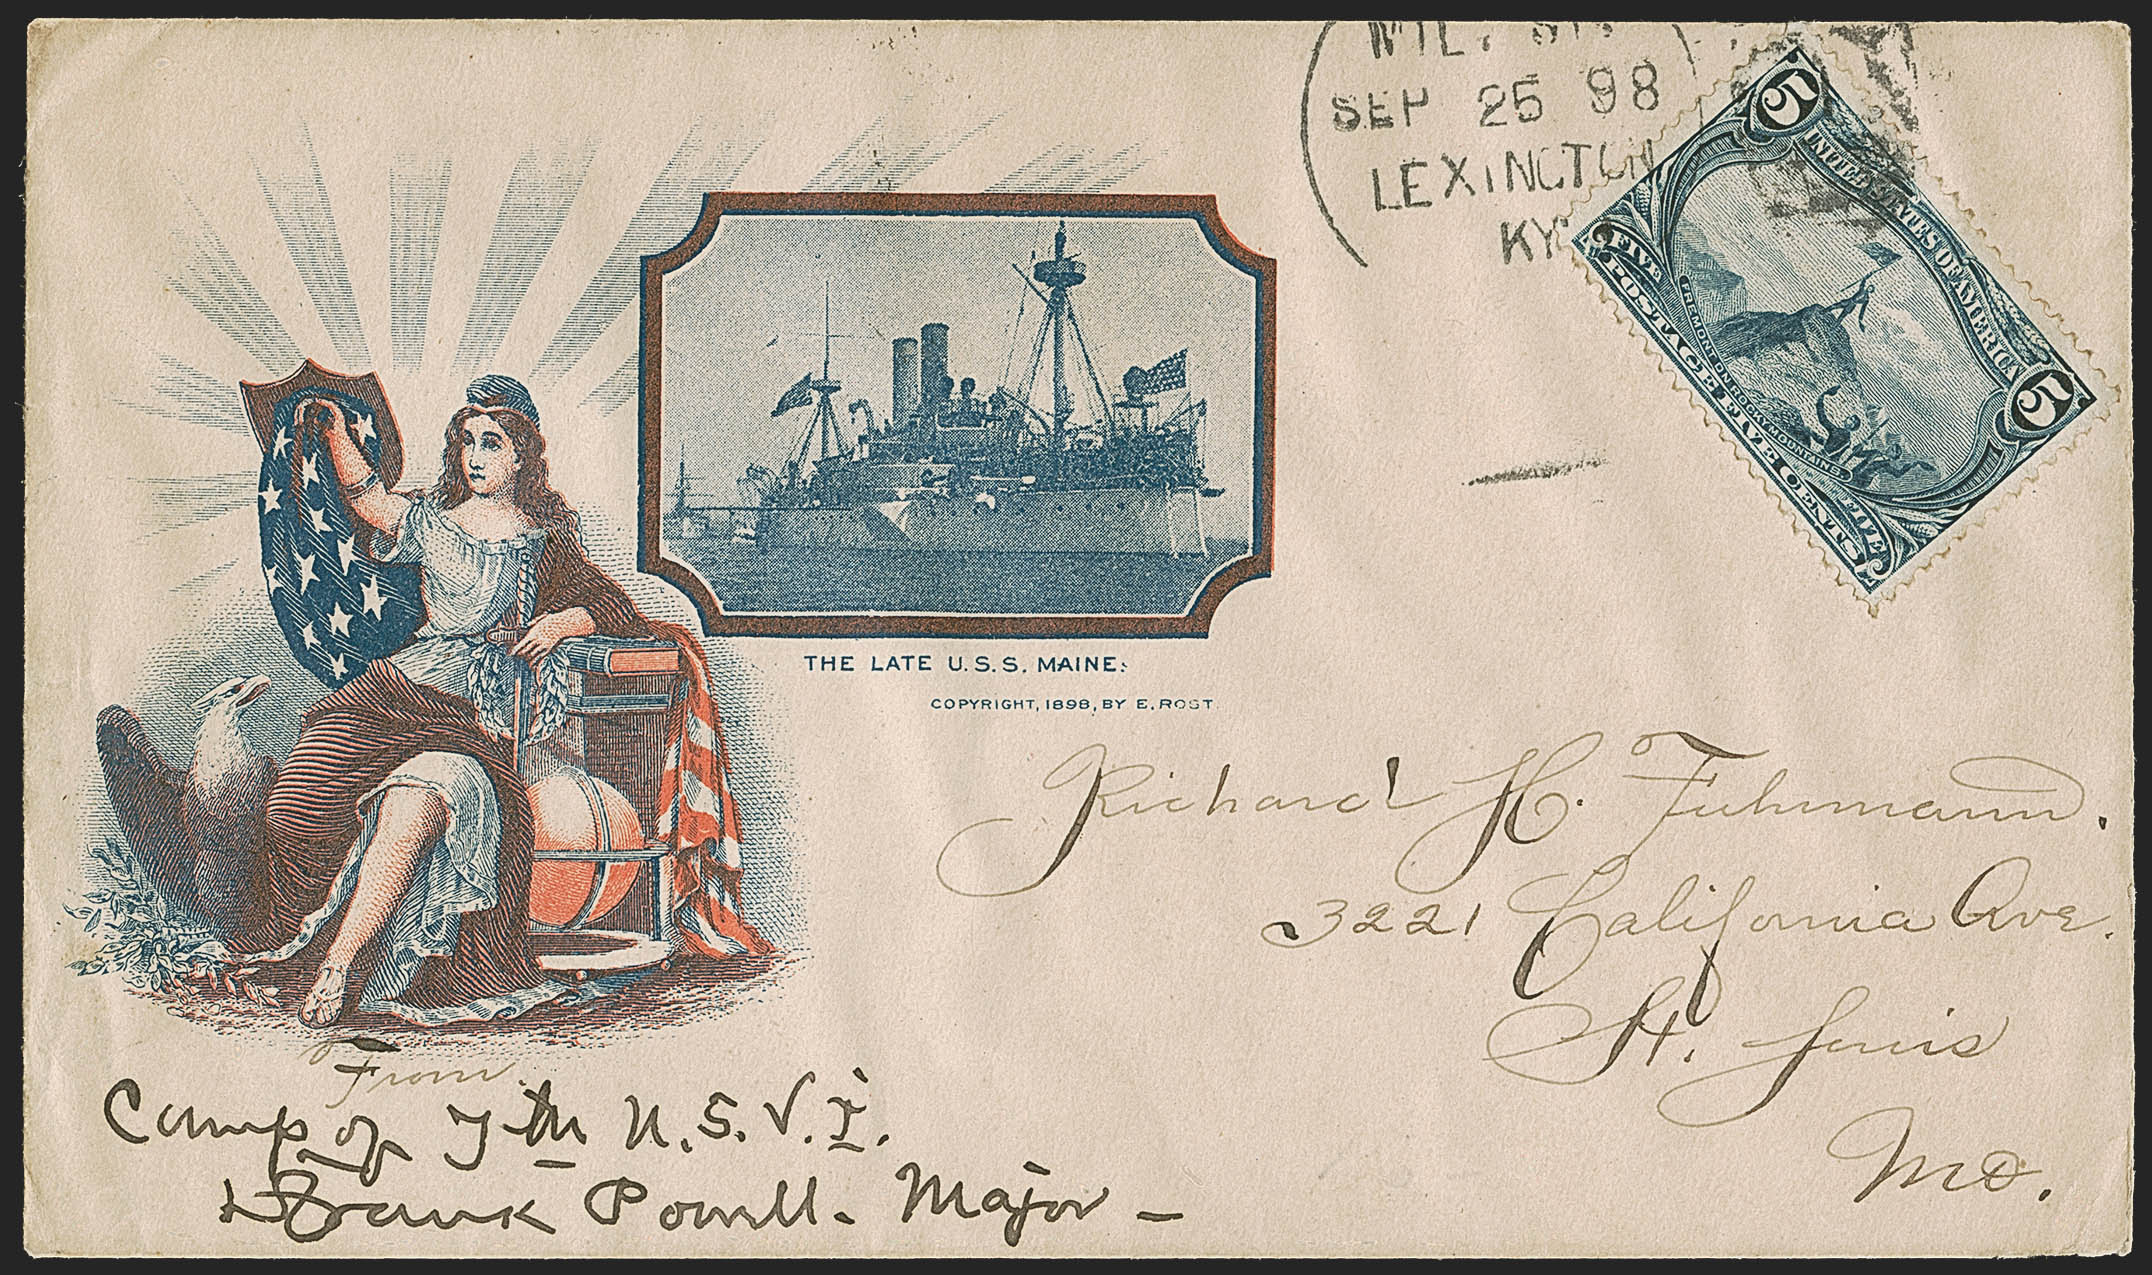 MIL. STA.
SEP 25 98
LEXINGTON
KY.
5
UNITED STATES OF AMERICA
5
FREMONT ON ROCKY MOUNTAINS
FIVE
POSTAGE FIVE CENTS
FIVE
THE LATE U.S.S. MAINE.
COPYRIGHT, 1898, BY E. ROST.
Richard H. Fuhrmann.
3221 California Ave.
St. Louis
Mo.
From
Camp of 7th U.S.V.I.
Frank Powell. Major -